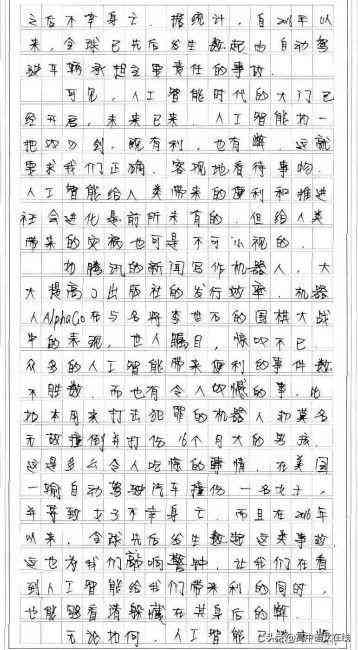 之后不幸身亡。据统计，自2016年以
来，全球已先后发生数起由自动驾
驶车辆承担主要责任的事故。
可见，人工智能时代的大门已
经开启，未来已来。人工智能为一
把双刃剑，既有利，也有弊，这就
要求我们正确、客观地看待事物。
人工智能给人类带来的便利和推进
社会进化是前所未有的，但给人类
带来的灾祸也可是不可小视的。
如腾讯的新闻写作机器人，大
大提高了出版社的发行效率，机器
人AlphaGo在与名将李世石的围棋大战
中的表现，世人瞩目，惊叹不已
众多的人工智能带来便利的事件数
不胜数，而也有令人叹憾的事，比
如本用来打击犯罪的机器人却莫名
无故撞倒并打伤16个月大的男孩，
这是多么令人吃惊的事情，在美国
一辆自动驾驶汽车撞伤一名女子，
并导致女子不幸身亡，而且在2016年
以来，全球先后发生数起这类事故，
这也为我们敲响警钟，让我们在看
到人工智能给我们带来利的同时，
也能够看清躲藏在其身后的弊。
无论如何，人工智能已
头条@高中语文在线